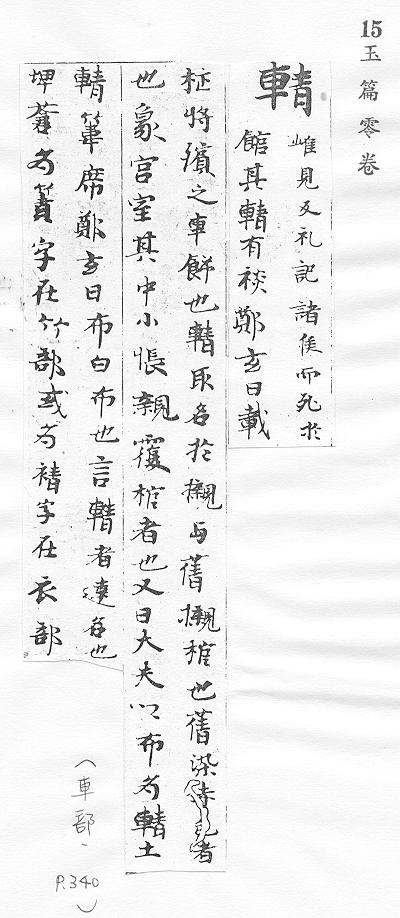 15玉篇零卷
輤 雌見反礼記諸侯而死於
館其輤有裧鄭玄曰載
柩將殯之車餝也輤取名於櫬与蒨櫬棺也蒨染者
也象宮室其中小帳親覆棺者也又曰大夫以布为輤士
輤葦席鄭玄曰布白布也言輤者達名也
埤蒼为箐字在竹部或为褿字在衣部
(車部、
P.340)